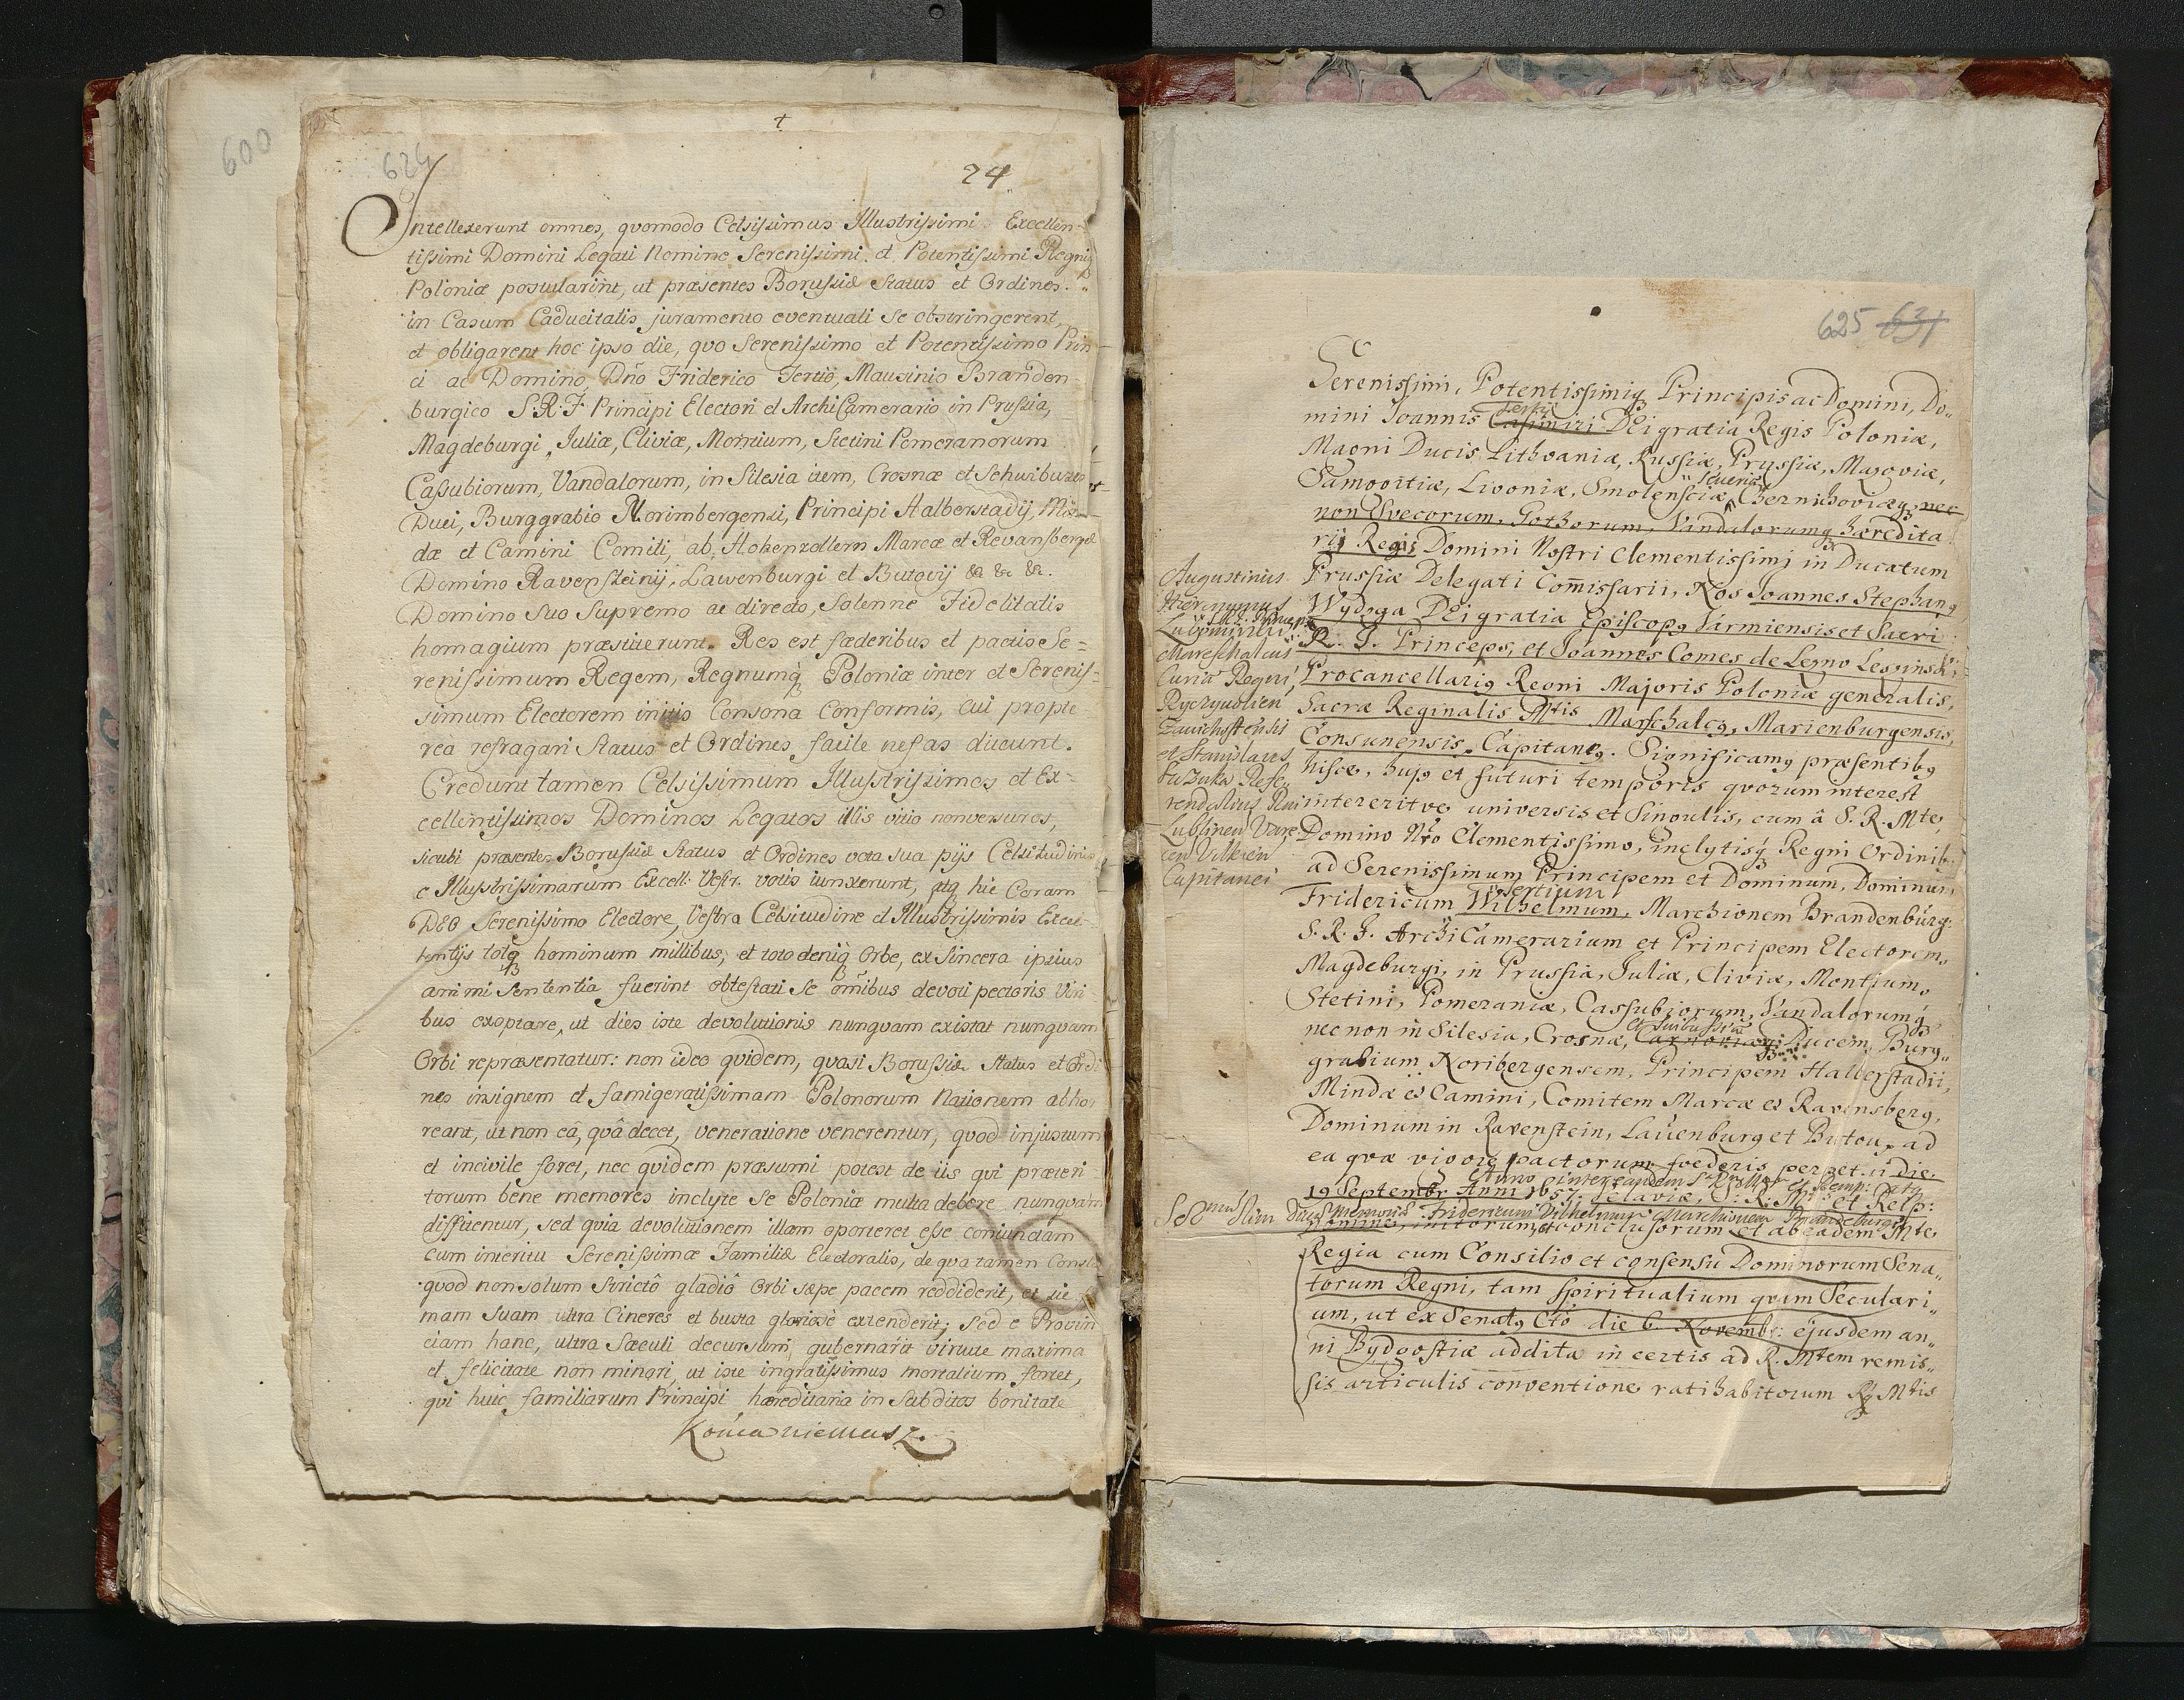 600
624
+
24
Intellexerunt omnes, qvomodo Celsissimus Illustrissimi Excellen-
tissimi Domini Legati Nomine Serenissimi et Potentissimi Regni
Poloniæ postularint, ut præsentes Borussiæ Status et Ordines
in Casum Caducitatis juramento eventuali se obstringerent,
et obligarent hoc ipso die, qvo Serenissimo et Potentissimo Prin
ci ac Domino, Dño Friderico Tertio, Brandon-
burgico S.R.J. Principi Electori et ArchiCamerario in Prussia,
Magdeburgi, Juliæ, Cliviæ, Montium, Stetini Pomeranorum
Cassubiorum, Vandalorum, in Silesia item, Crosnæ et
Duci, Burggrabio Norimbergensi, Principi Halberstadij, Min
dæ et Camini Comiti, ab, Hohenzollern Marcæ et Revansbergæ
Domino Ravensteinij, Lawenburgi et Butovij &c &c &c.
Domino Suo Supremo ac directo, Solenne Fidelitatis
homagium præstiterunt. Res est fæderibus et pactis Se=
renissimum Regem, Regnumq Poloniæ inter et Serenis=
simum Electorem initis Consona Conformis, cui propte
rea refragari Status et Ordines facile nefas ducunt.
Credunt tamen Celsissimum Illustrissimos et Ex=
cellentissimos Dominos Legatos illis vitio nonversuros,
sicubi præsentes Borussiæ Status et Ordines vota sua pijs Celsitudinis
e Illustrissimarum Excell: Vestr. votis iunxerunt, atq hic Coram
DEO Serenissimo Electore, Vestra Celsitudine et Illustrissimis Excel-
lentijs totq hominum millibus, et toto deniq Orbe, ex Sincera ipsius
animi Sententia fuerint obtestati Se omibus devoti pectoris Viri-
bus exoptare, ut dies iste devolutionis nunqvam existat nunqvam
Orbi repræsentatur: non ideo qvidem, qvasi Borussiæ Status et Ordi
nes insignem et famigeratissimam Polonorum Nationem abhor
reant, ut non eâ, qvâ decet, veneratione venerentur, qvod injustum
et incivile foret, nec qvidem præsumi potest de iis qvi præteri-
torum bene memores inclyte Se Poloniæ multa debere nunqvam
diffitentur, sed qvia devolutionem illam oporteret esse coniunctam
cum interitu Serenissimæ Familiæ Electoralis, de qva tamen Const
qvod non solum Strictô gladiô Orbi sæpe pacem reddiderit, et
mam suam ultra Cineres et busta gloriosè extenderit; Sed e Provin
ciam hanc, ultra Sæculi decursum, gubernârit virtute maxima
et felicitate non minori, ut iste ingratissimus mortalium foret,
qvi huic familiarum Principi hæreditaria in Subditos bonitate
Końca niemasz.
625 631
Serenissimi, Potentissimiq Principis ac Domini, Do„
tertii
mini Joannis Casimiri DEi gratia Regis Poloniæ,
Magni Ducis Lithvaniæ, Russiæ, Pryssiæ, Mazoviæ,
Severiæ
Samogitiæ, Livoniæ, Smolensciæ, Czernichoviæq, nec
non Svecorum, Gothorum, Vandalorumq hæredita
rij Regis Domini Nostri Clementissimi in Ducatum
Prussiæ Delegati Comissarii, Nos Joannes Stephan9
Wydzga DEi gratia Episcop9 Varmiensis et Sacri
R. J. Princeps, et Joannes Comes de Lezno Lesvinski
Procancellari9 Regni Majoris Poloniæ generalis,
Sacræ Reginalis Mtis Marschalc9, Marienburgensis,
Consunensis, Capitane9. Significam9 præsentib9
hisce, huj9 et futuri temporis qvorum interest
intereritve universis et Singulis, cum â S. R. Mte,
Domino Nro Clementissimo, inclytisq Regni Ordinib9
ad Serenissimum Principem et Dominum, Dominum
tertium
Fridericum Wilhelmum, Marchionem Brandenburg:
S. R. J. ArchiCamerarium et Principem Electorem,
Magdeburgi, in Prussia, Juliæ, Cliviæ, Montium,
Stetini, Pomeraniæ, Cassubiorum, Vandalorumq
nec non in Silesia, Crosnæ, Carnoviæq Ducem, Burg„
grabium Noribergensem, Principem Halberstadii,
Mindæ et Camini, Comitem Marcæ et Ravensberg,
Dominum in Ravenstein, Lauenburg et Butou, ad
ea qvæ vigore pactorum foederis perpetui die
19 Septembr Anni 1657. Velaviæ, S. R. Mtis et Reip:
Fridericum Vilhelmum Marchionem Brandeburgi
initorum, et conclusorum et ab eadem Mte
Regia cum Consilio et consensu Dominorum Sena„
torum Regni, tam Spiritualium qvam Seculari„
um, ut ex Senat9 Cto die 6. Novemb: ejusdem an„
ni Bydgostiæ addita in certis ad R. Mtem remis„
sis articulis conventione ratihabitorum Rg Mtis
Augustinus
Hieronymus
Lubomirski
Mareschalcus
Curiæ Regni,
et Stanislaus
Refe
rendarius Rni
Lublinen
Capitanei